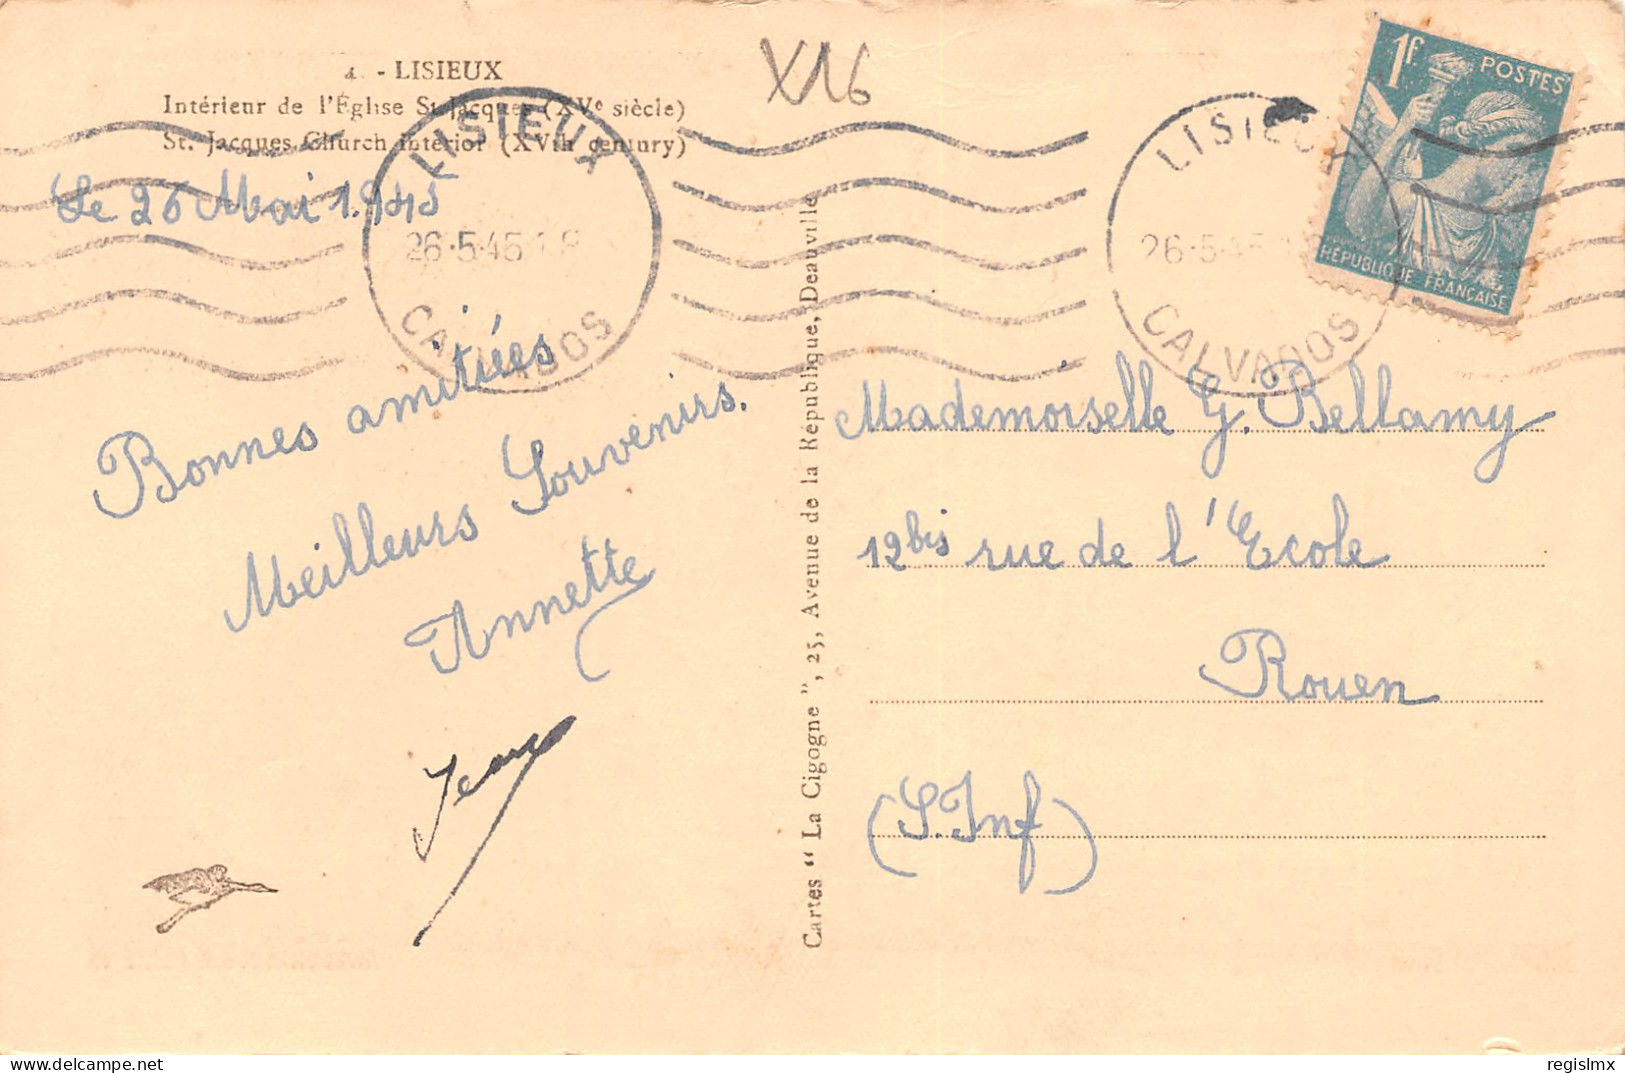 4. - LISIEUX
Intérieur de l'Église St-Jacques (XVe siècle)
St. Jacques Church interior (XVth century)
Le 26 Mai 1.945
LISIEUX
26-5-45
CALVADOS
Bonnes amitiées
Meilleurs Souvenirs.
Annette
Cartes "La Cigogne", 25, Avenue de la République, Deauville
LISIEUX
26-5-45
CALVADOS
1f.
POSTES
REPUBLIQUE FRANÇAISE
Mademoiselle G. Bellamy
12bis rue de l'Ecole
Rouen
(S. Inf)
delcampe.net
regislmx